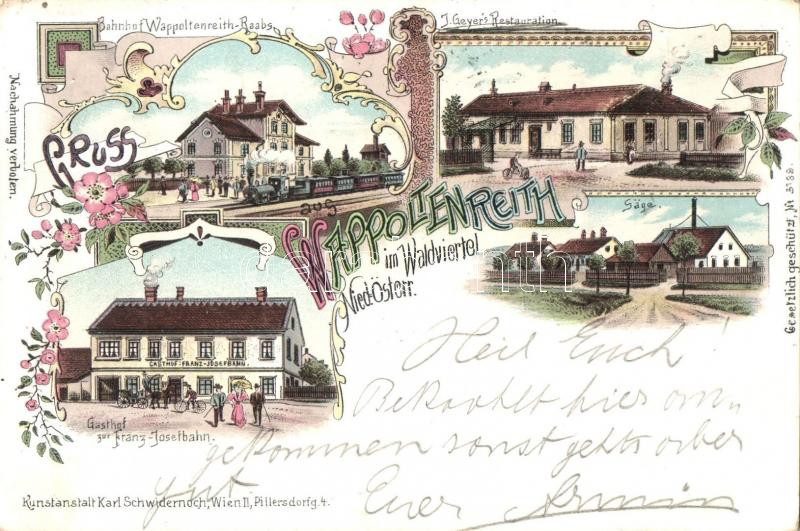 Bahnhof Wappoltenreith-Raabs.
J. Geyer's Restauration
Nachahmung verboten.
Gruss
aus
Wappoltenreith
im Waldviertel
Nied.-Österr.
Säge.
Gesetzlich geschützt, № 3188.
GASTHOF FRANZ-JOSEFBAHN.
Gasthof
zur Franz-Josefbahn.
Heil Euch!
hier an-
gekommen sonst gehts aber
gut Euer Armin
Kunstanstalt Karl Schwidernoch, Wien II, Pillersdorfg. 4.